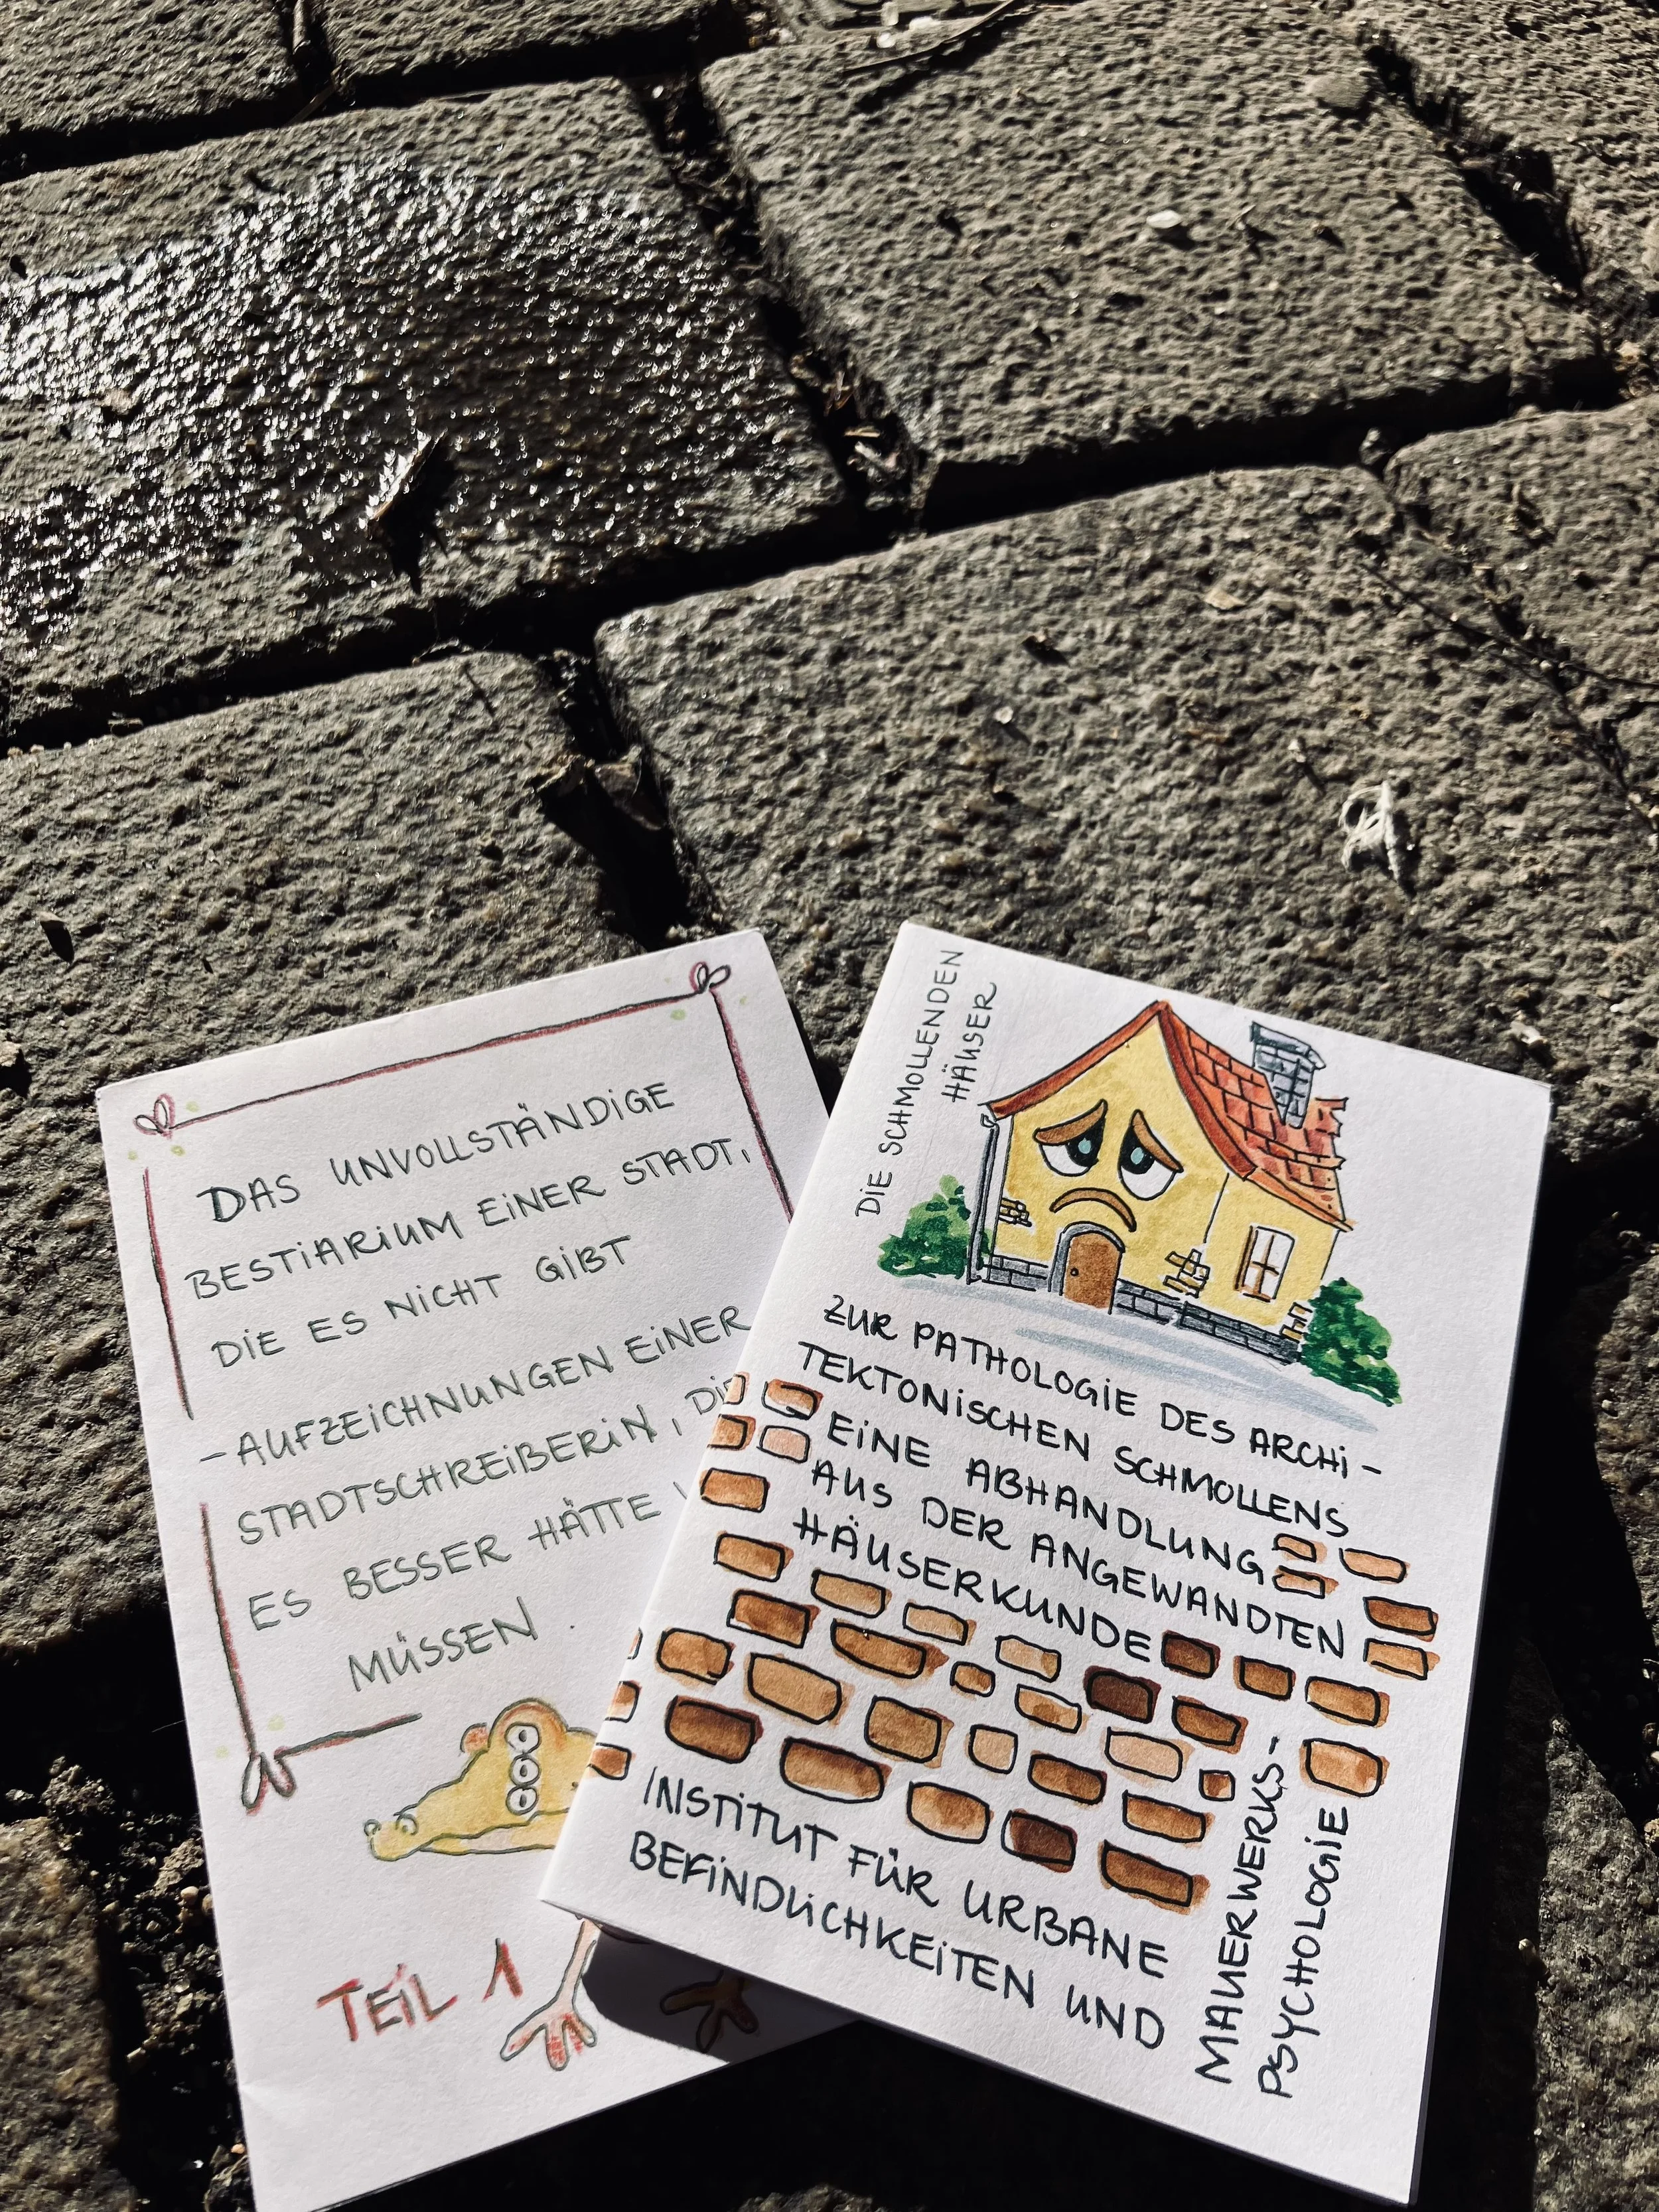 DAS UNVOLLSTÄNDIGE
BESTIARIUM EINER STADT,
DIE ES NICHT GIBT
- AUFZEICHNUNGEN EINER
STADTSCHREIBERIN, DIE
ES BESSER HÄTTE
MÜSSEN
TEIL 1
DIE SCHMOLLENDEN
HÄUSER
ZUR PATHOLOGIE DES ARCHI-
TEKTONISCHEN SCHMOLLENS
EINE ABHANDLUNG
AUS DER ANGEWANDTEN
HÄUSERKUNDE
INSTITUT FÜR URBANE
BEFINDLICHKEITEN UND
MAUERWERKS-
PSYCHOLOGIE